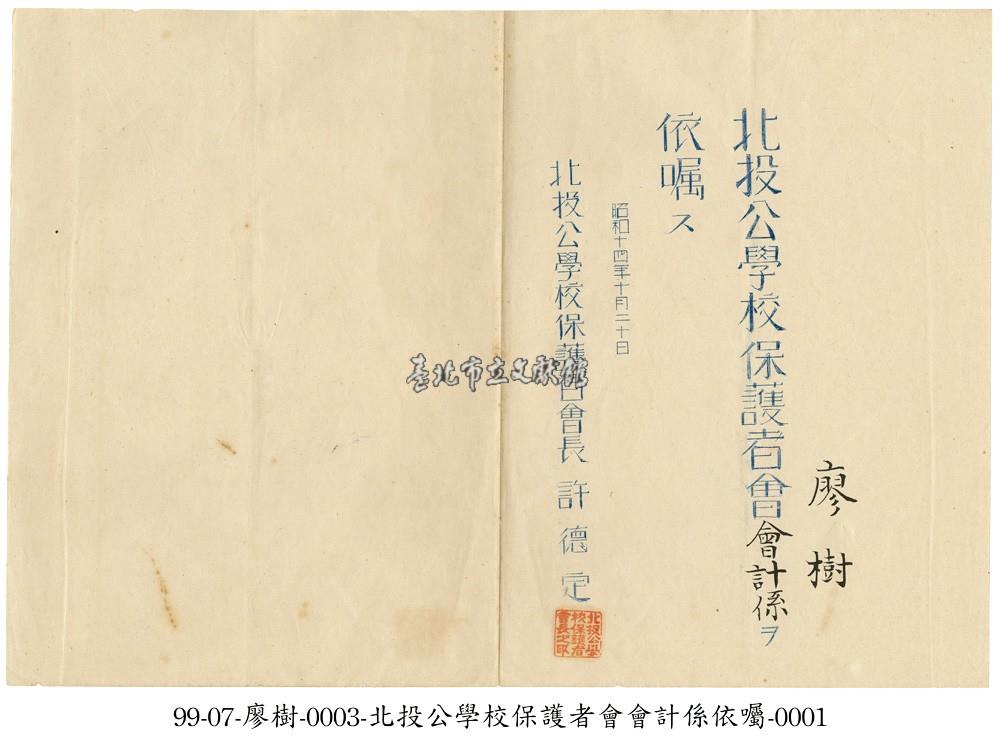 廖樹
北投公學校保護者會會計係ヲ
依囑ス
昭和十四年十月二十日
北投公學校保護者會長 許德定
北投公學
校保護者
會長之印
臺北市立文獻館
99-07-廖樹-0003-北投公學校保護者會會計係依囑-0001